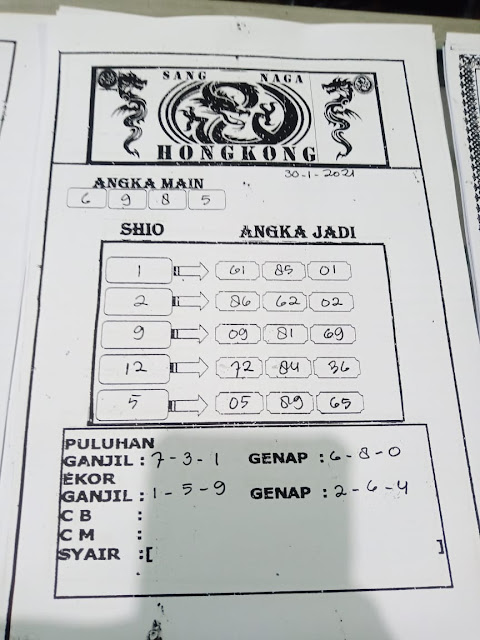 SANG NAGA
HONGKONG
30-1-2021
ANGKA MAIN
6 9 8 5
SHIO ANGKA JADI
1 61 85 01
2 86 62 02
9 09 81 69
12 72 84 36
5 05 89 65
PULUHAN
GANJIL : 7-3-1 GENAP : 6-8-0
EKOR
GANJIL : 1-5-9 GENAP : 2-6-4
C B :
C M :
SYAIR :[ ]